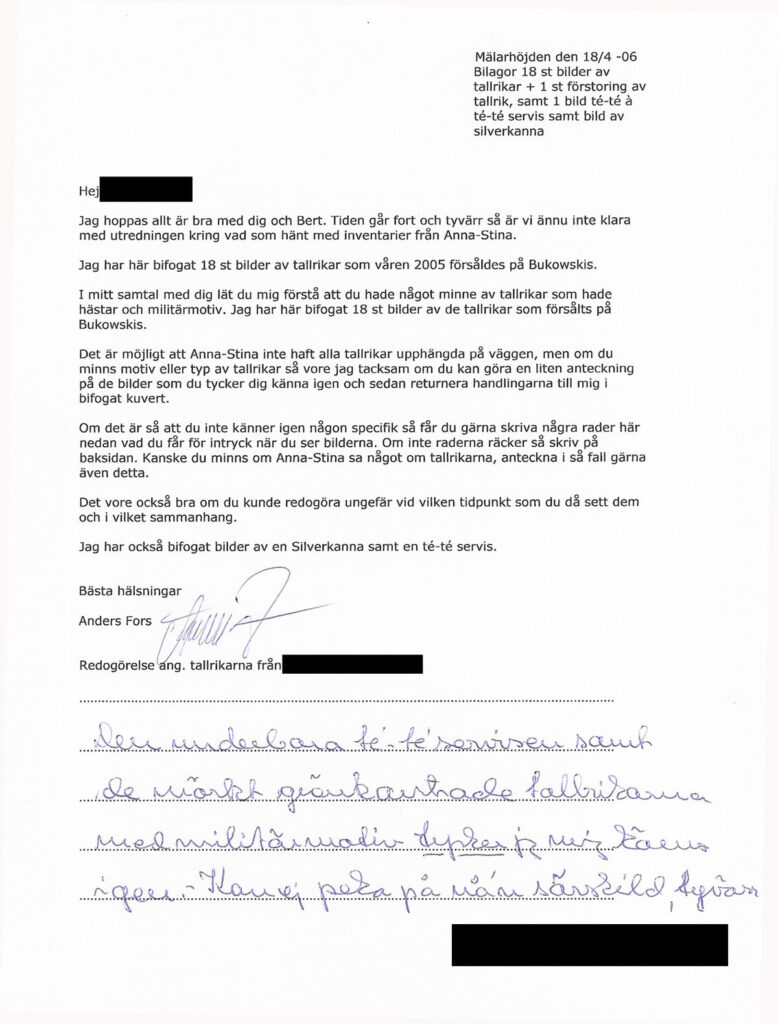 Mälarhöjden den 18/4 -06
Bilagor 18 st bilder av
tallrikar + 1 st förstoring av
tallrik, samt 1 bild té-té à
té-té servis samt bild av
silverkanna
Hej
Jag hoppas allt är bra med dig och Bert. Tiden går fort och tyvärr så är vi ännu inte klara
med utredningen kring vad som hänt med inventarier från Anna-Stina.
Jag har här bifogat 18 st bilder av tallrikar som våren 2005 försåldes på Bukowskis.
I mitt samtal med dig lät du mig förstå att du hade något minne av tallrikar som hade
hästar och militärmotiv. Jag har här bifogat 18 st bilder av de tallrikar som försålts på
Bukowskis.
Det är möjligt att Anna-Stina inte haft alla tallrikar upphängda på väggen, men om du
minns motiv eller typ av tallrikar så vore jag tacksam om du kan göra en liten anteckning
på de bilder som du tycker dig känna igen och sedan returnera handlingarna till mig i
bifogat kuvert.
Om det är så att du inte känner igen någon specifik så får du gärna skriva några rader här
nedan vad du får för intryck när du ser bilderna. Om inte raderna räcker så skriv på
baksidan. Kanske du minns om Anna-Stina sa något om tallrikarna, anteckna i så fall gärna
även detta.
Det vore också bra om du kunde redogöra ungefär vid vilken tidpunkt som du då sett dem
och i vilket sammanhang.
Jag har också bifogat bilder av en Silverkanna samt en té-té servis.
Bästa hälsningar
Anders Fors
Redogörelse ang. tallrikarna från
Den underbara té-té servisen samt
de mörkt grönkantrade tallrikarna
med militärmotiv tycker jg mig känna
igen. - Kan ej peka på nån särskild, tyvärr